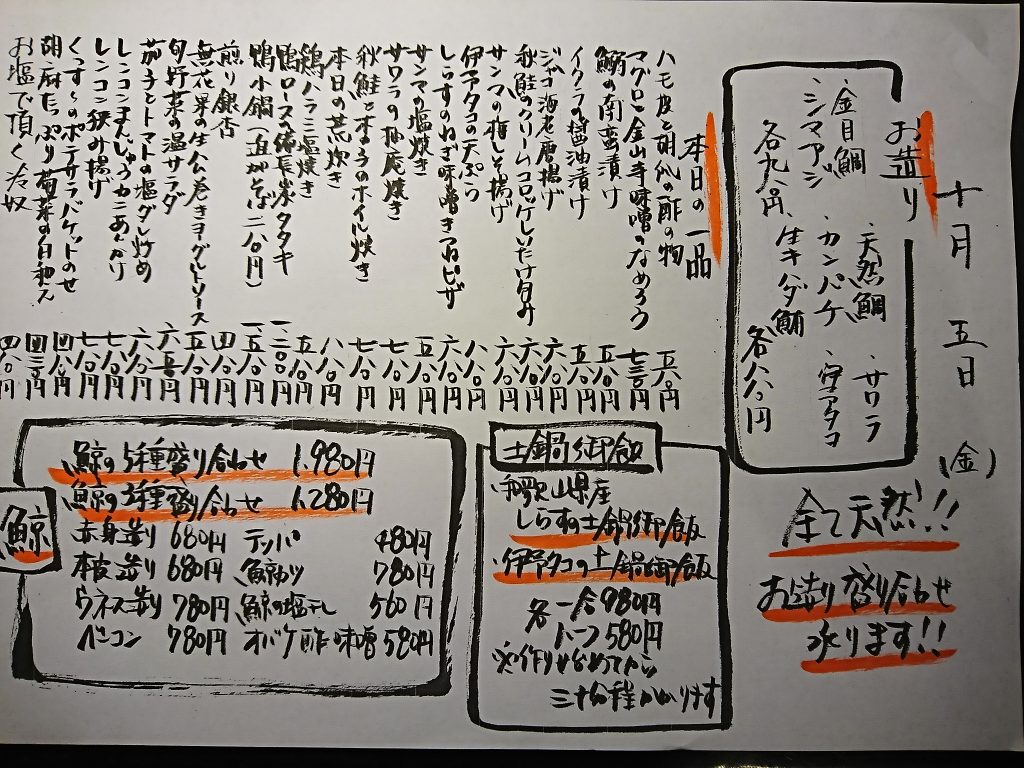 十月 五日 (金)
お造り
、金目鯛 、天然鯛 、サワラ
、シマアジ 、カンパチ 、空アタコ
各九八〇円 、生キハダ鮪 各八八〇円
全て天然!!
お造り盛り合わせ
承ります!!
本日の一品
ハモ皮と胡瓜の酢の物 五八〇円
マグロと金山寺味噌のなめろう 七三〇円
鰯の南蛮漬け 五八〇円
イクラの醤油漬け 五八〇円
ジャコ海老唐揚げ 六八〇円
秋鮭のクリームコロッケしいたけ包み 六八〇円
サンマの梅しそ揚げ 六八〇円
伊予タコの天ぷら 八八〇円
しらすのねぎ味噌きつねピザ 六八〇円
サンマの塩焼き 五八〇円
サワラの柚庵焼き 七八〇円
秋鮭ときのこのホイル焼き 七八〇円
本日の荒炊き 八八〇円
鶏ハラミ塩焼き 五八〇円
鴨ロース備長炭タタキ 一二〇〇円
鴨小鍋(追がそば二八〇円) 一五八〇円
煎り銀杏 四八〇円
無花果の生ハム巻きヨーグルトソース 五八〇円
旬野菜の温サラダ 六三〇円
茄子とトマトの塩ダレ炒め 六八〇円
レンコンまんじゅうカニあんかけ 七八〇円
レンコン挟み揚げ 七八〇円
くっすぅのポテサラバケットのせ 四八〇円
胡麻たっぷり菊菜の白和え 四三〇円
お塩で頂く冷奴 四八〇円
土鍋御飯
和歌山県産
しらすの土鍋御飯
伊予タコの土鍋御飯
各 一合 980円
ハーフ 580円
※作り始めてから
三十分程かかります
鯨
鯨の5種盛り合わせ 1,980円
鯨の3種盛り合わせ 1,280円
赤身造り 680円 テッパ 480円
本皮造り 680円 鯨カツ 780円
ウネス造り 780円 鯨の塩干し 560円
ベーコン 780円 オバケ酢味噌 580円